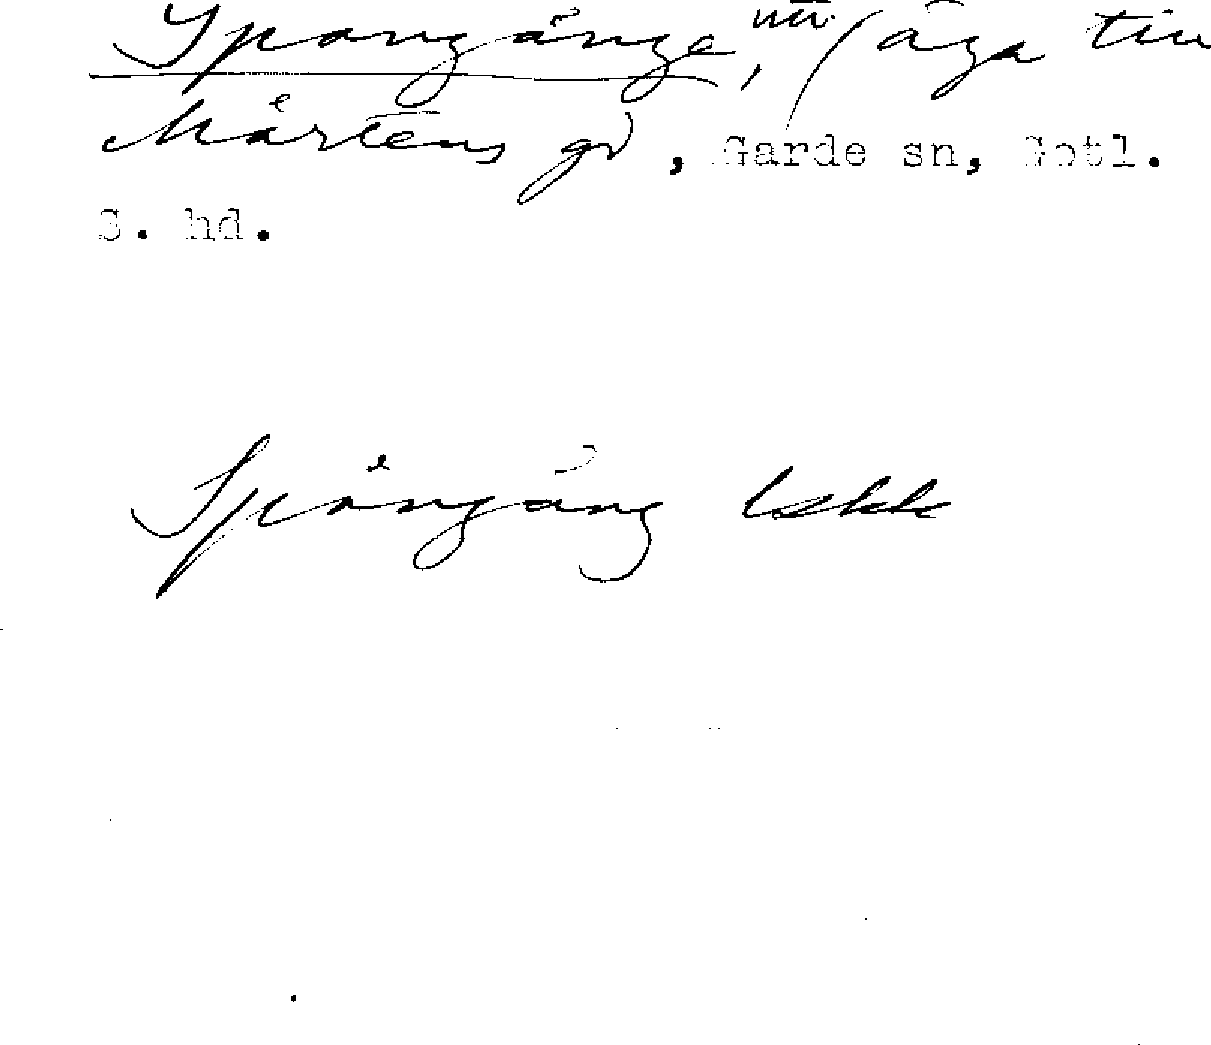 Spångänge, (äga till
Mårtens gd, Garde sn, Gotl.
S. hd.
Spångäng